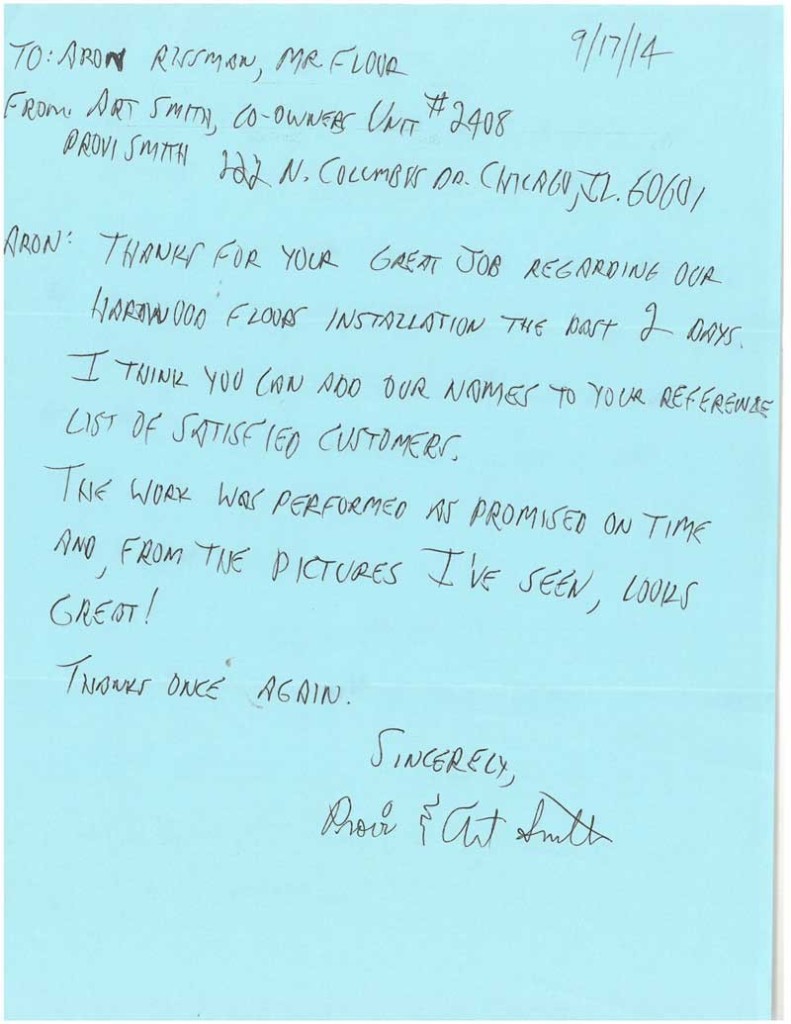 9/17/14
TO: ARON RISSMAN, MR. FLOOR
FROM: ART SMITH, CO-OWNERS UNIT #2408
PROVI SMITH 222 N. COLUMBUS DR. CHICAGO, IL. 60601
ARON: THANKS FOR YOUR GREAT JOB REGARDING OUR
HARDWOOD FLOORS INSTALLATION THE PAST 2 DAYS.
I THINK YOU CAN ADD OUR NAMES TO YOUR REFERENCE
LIST OF SATISFIED CUSTOMERS.
THE WORK WAS PERFORMED AS PROMISED ON TIME
AND, FROM THE PICTURES I'VE SEEN, LOOKS
GREAT!
THANKS ONCE AGAIN.
SINCERELY,
Provi & Art Smith